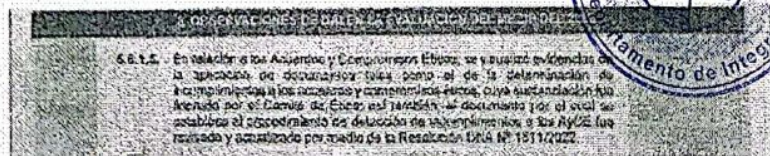 OBSERVACIONES DE EN LA EVALUACIÓN DEL MECIP DEL
Departamento de Integ
6.6.1.5. En relación a los Acuerdos y Compromisos Éticos, se evidencias de
la aplicación de documentos tales como el de la determinación de
incumplimientos a los acuerdos y compromisos éticos, cuya sustanciación fue
por el Comité de Ética así también el documento por el cual se
establece el procedimiento de detección de incumplimientos a los AyCE fue
revisado y actualizado por medio de la Resolución N° 1511/2022.